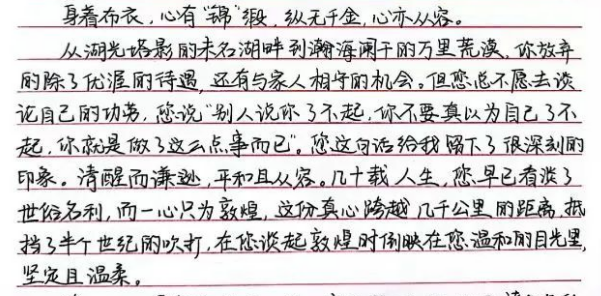 身着布衣,心有“锦”缎,纵无千金,心亦从容。
从湖光塔影的未名湖畔到瀚海阑干的万里荒漠,你放弃
的除了优渥的待遇,还有与家人相守的机会。但您总不愿去谈
论自己的功劳,您说“别人说你了不起,你不要真以为自己了不
起,你就是做了这么点事而已”。您这句话给我留下了很深刻的
印象。清醒而谦逊,平和且从容。几十载人生,您早已看淡了
世俗名利,而一心只为敦煌,这份真心跨越几千公里的距离,抵
挡了半个世纪的吹打,在您谈起敦煌时倒映在您温和的目光里,
坚定且温柔。